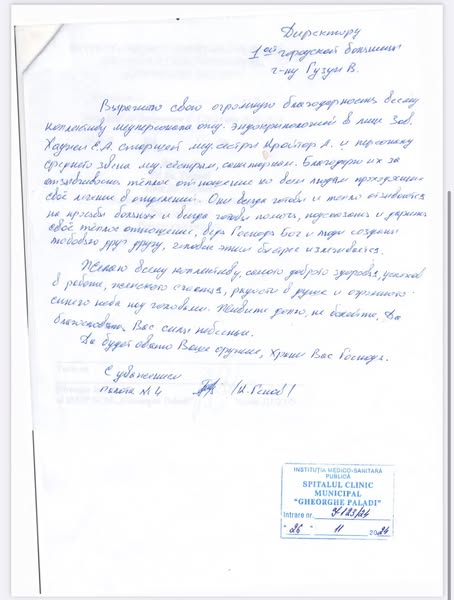 Директору
1ой городской больницы
г-ну Гузун В.
Выражаю свою огромную благодарность всему
коллективу медперсонала отд. эндокринологией в лице Зав.
Е.А. старшей мед. сестры Кройтор Л. и персоналу
среднего звена мед. сёстрам, санитаркам. Благодарю их за
отзывчивость, тёплое отношение ко всем людям проходящим
своё лечение в отделении. Они всегда готовы и тепло отзываются
на просьбы больных и всегда готовы помочь, подсказать и
своё тёплое отношение, ведь Господь Бог и люди созданы
любовью друг другу, человек этим быстрее излечивается.
Желаю всему коллективу, самого доброго здоровья, успехов
в работе, женского счастья, радости в душе и огромного
синего неба над головами. Живите долго, не болейте. Да
благословят Вас силы небесные.
Да будет свято Ваше оружие, Храни Вас Господь.
С уважением
палата № 4
INSTITUŢIA MEDICO-SANITARĂ
PUBLICĂ
SPITALUL CLINIC
MUNICIPAL
"GHEORGHE PALADI"
Intrare nr.
"26" 11 2024